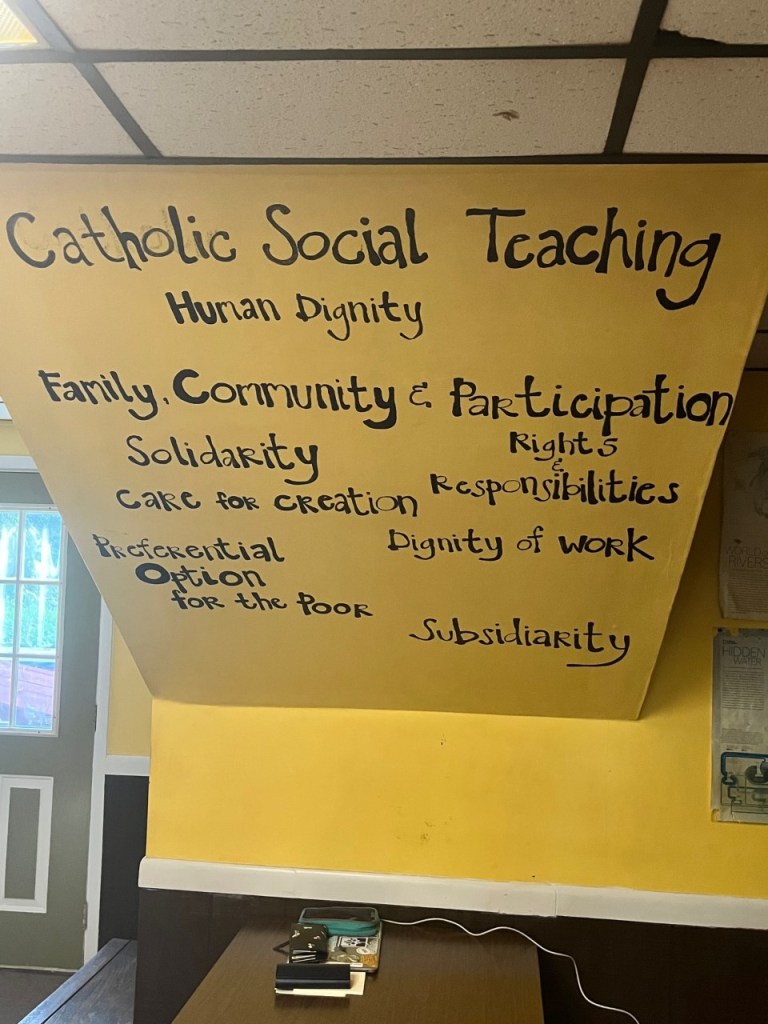 Catholic Social Teaching
Human Dignity
Family, Community & Participation
Solidarity
Rights
&
Responsibilities
Care for Creation
Preferential
Option
for the Poor
Dignity of Work
Subsidiarity
WORLD
RIVERS
HIDDEN
WATER